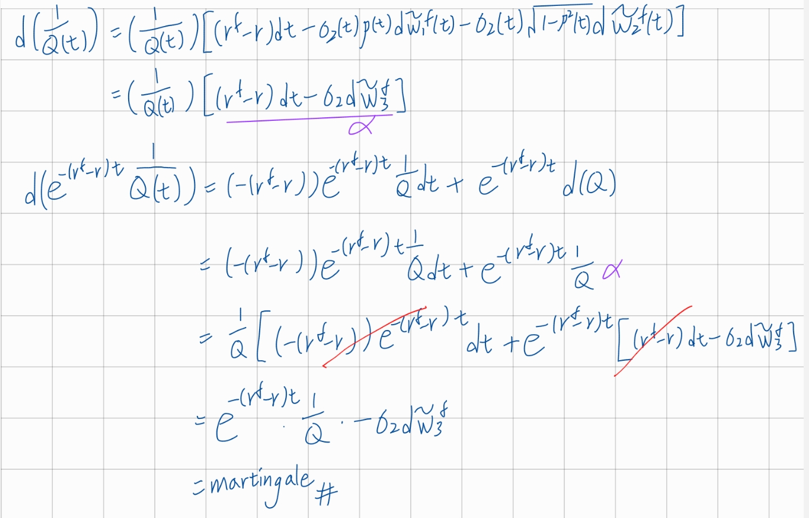 d(1/Q(t)) = (1/Q(t)) [(r^f-r)dt - σ₂(t)ρ(t)dW̃₁^f(t) - σ₂(t)√(1-ρ²(t)) dW̃₂^f(t)]
= (1/Q(t)) [(r^f-r)dt - σ₂dW̃₃^f]
α
d(e^{-(r^f-r)t} 1/Q(t)) = (-(r^f-r))e^{-(r^f-r)t} 1/Q dt + e^{-(r^f-r)t} d(Q)
= (-(r^f-r))e^{-(r^f-r)t} 1/Q dt + e^{-(r^f-r)t} 1/Q α
= 1/Q [(-(r^f-r))e^{-(r^f-r)t} dt + e^{-(r^f-r)t} [(r^f-r)dt - σ₂dW̃₃^f]
= e^{-(r^f-r)t} · 1/Q · -σ₂dW̃₃^f
= martingale #